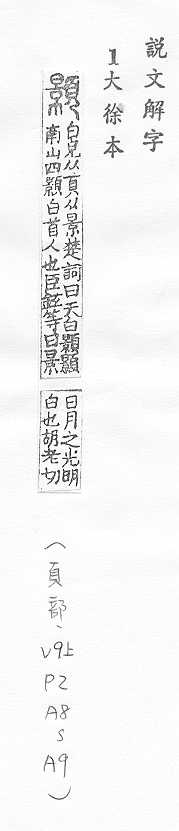 説文解字
1大徐本
顥
白皃从頁从景楚詞曰天白顥顥
南山四顥白首人也臣鉉等曰景
日月之光明
白也胡老切
(頁部、
V9上
P2
A8
S
A9)